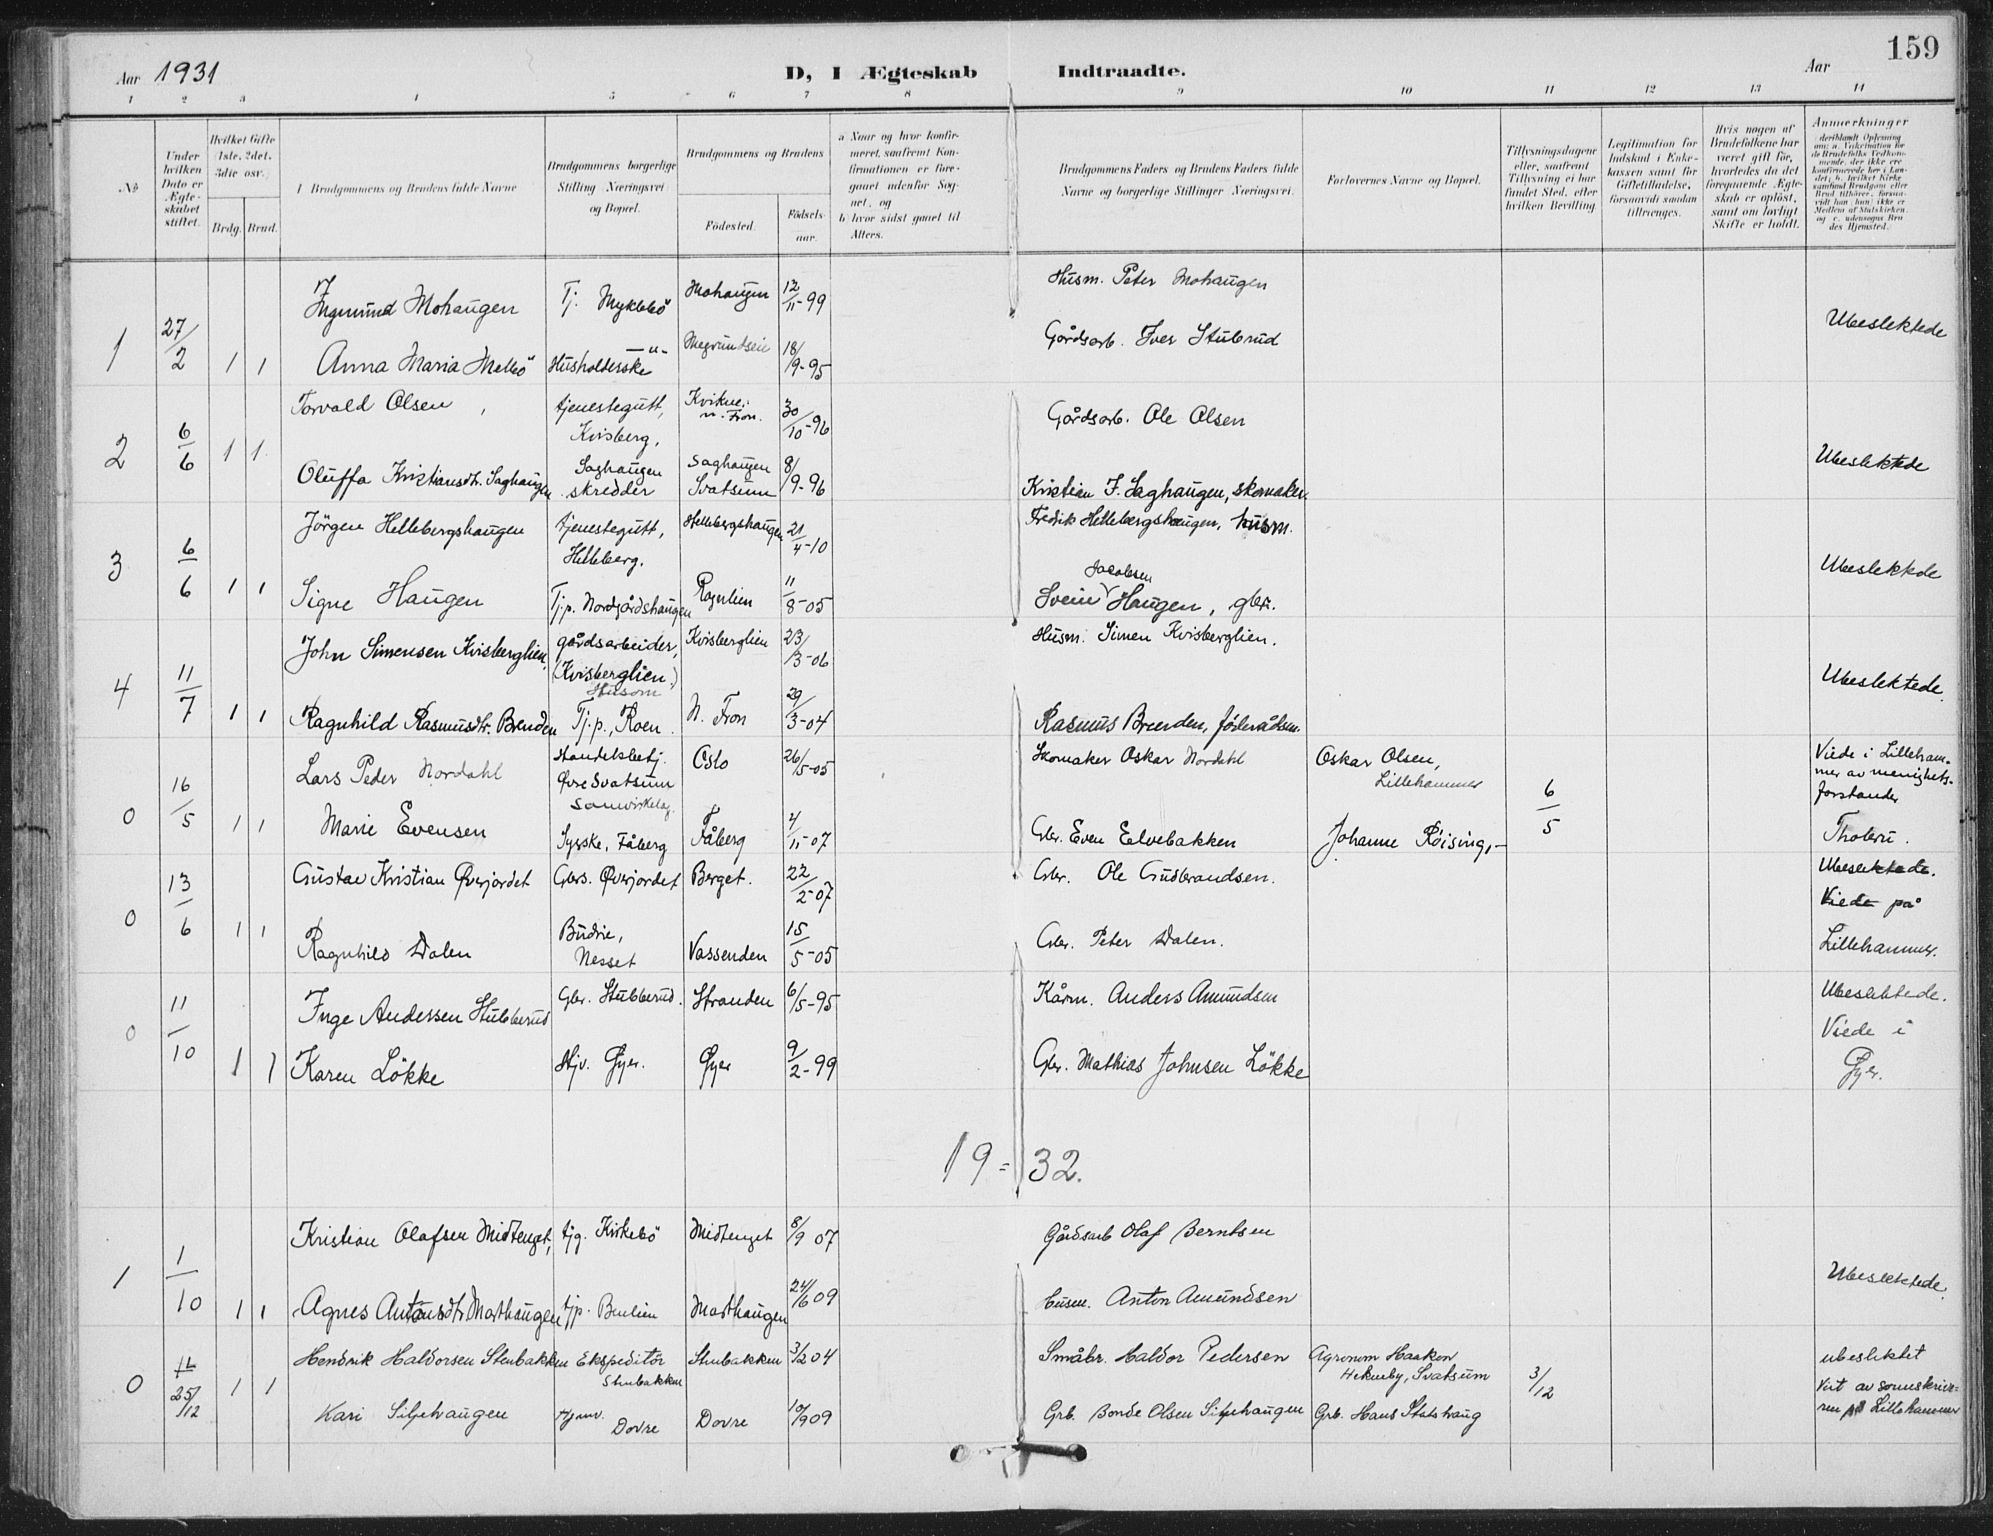 159
Aar 1931
D, I Ægteskab Indtraadte.
Aar
1 2 3 4 5 6 7 8 9 10 11 12 13 14
№
Under hvilken Dato er Ægteskabet stiftet.
Hvilket Gifte 1ste, 2det, 3die osv.
Brdg. Brud.
Brudgommens og Brudens fulde Navne
Brudgommens borgerlige Stilling Næringsvei og Bopæl.
Brudgommens og Brudens
Födested.
Födselsaar.
a Naar og hvor konfirmeret, saafremt Konfirmationen er foregaaet udenfor Sognet, og
b hvor sidst gaaet til Alters.
Brudgommens Faders og Brudens Faders fulde Navne og borgerlige Stillinger Næringsvei.
Forlovernes Navne og Bopæl.
Tillysningsdagene eller, saafremt Tillysning ei har fundet Sted, efter hvilken Bevilling
Legitimation for Indskud i Enkekassen samt for Giftetilladelse, forsaavidt saadan tiltrænges.
Hvis nogen af Brudefolkene har været gift før, hvorledes da det foregaaende Ægteskab er opløst, samt om lovligt Skifte er holdt.
Anmærkninger
1 27/2 1 1
Ingmund Mohaugen Tj. Myklebö Mohaugen 12/11-99 Husm. Peter Mohaugen
Anna Maria Melbö Husholderske -"- 18/9-95 Gårdsarb. Iver Stubrud Ubeslektede
2 6/6 1 1
Torvald Olsen tjenestegutt, Kvisberg, Kvikne, n. Fron. 30/10-96 Gårdsarb. Ole Olsen
Oluffa Kristiansdtr. Saghaugen Saghaugen skredder Saghaugen Svatsum 8/9-96 Kristian F. Saghaugen, skomaker Ubeslektede
3 6/6 1 1
Jörgen Hellebergshaugen tjenestegutt, Helleberg. Hellebergshaugen 21/4-10 Fredik Hellebergshaugen, husm.
Signe Haugen Tj.p. Nordgårdshaugen Rognlien 11/8-05 Svein Jacobsen Haugen, gbr. Ubeslektede
4 11/7 1 1
John Simensen Kvisberglien, gårdsarbeider, (Kvisberglien.) Kvisberglien 23/3-06 Husm. Simen Kvisberglien.
Ragnhild Rasmusdtr. Brenden Tj.p., Roen. N. Fron 29/3-04 Rasmus Brenden, föderådsm. Ubeslektede.
0 16/5 1 1
Lars Peder Nordahl Handelsbetj. Øvre Svatsum Samvirkelag Oslo 26/5-05 Skomaker Oskar Nordahl Oskar Olsen, Lillehammer 6/5
Viede i Lillehammer av menighetsforstander Tholeru.
Marie Evensen Syerske, Fåberg Fåberg 4/11-07 Gbr. Even Eelvebakken Johanne Röising, -
0 13/6 1 1
Gustav Kristian Øverjordet Gbrs. Øverjordet Berget. 22/2-07 Gbr. Ole Gudbrandsen. Ubeslektede.
Viede på Lillehammer.
Ragnhild Dalen Budeie, Nesset Vassenden 15/5-05 Gbr. Peter Dalen.
0 11/10 1 1
Inge Andersen Stubberud Gbr. Stubberud. Stranden 6/5-95 Kårm. Anders Amundsen Ubeslektede.
Viede i Øyer.
Karen Lökke Hjv. Øyer. Øyer 9/2-99 Gbr. Mathias Johnsen Lökke
19 = 32.
1 1/10 1 1
Kristian Olafsen Midtenget, tjg. Kirkebö Midtenget 8/9 07 Gårdsarb Olaf Berntsen
Agnes Antonsdtr. Morthaugen tjp. Morthaugen 24/6 09 husm. Anton Amundsen Ubeslektede.
0 25/12 1 1
Hendrik Haldorsen Stubakken Ekspeditör Stubakken Stubakken 3/2 04 Småbr. Haldor Pedersen Agronom Haakon Hekneby, Svatsum 3/12
ubeslektet
Viet av sorenskriveren på Lillehammer
Kari Siljehaugen Hjemv. Dovre Dovre 10/9 09 Grb. Bonde Olsen Siljehaugen Grb. Hans Statshaug